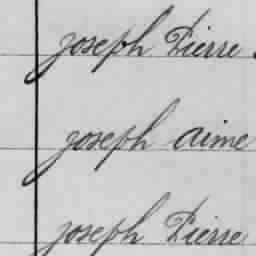 Joseph Pierre
Joseph aime
Joseph Pierre